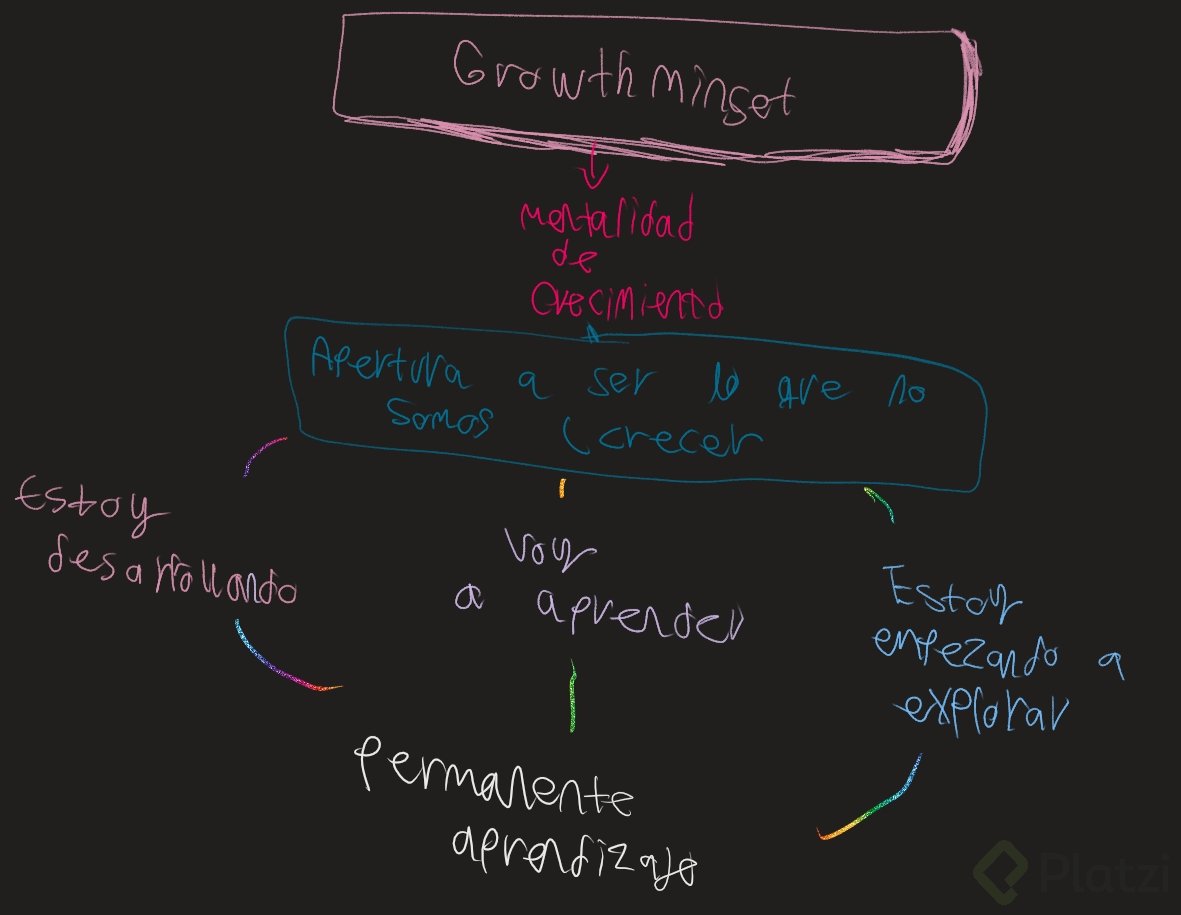 Growth minset
Mentalidad
de
Crecimiento
Apertura a ser lo que no
somos (crecer
Estoy
desarrollando
Voy
a aprender
Estoy
empezando a
explorar
Permanente
aprendizaje
Platzi